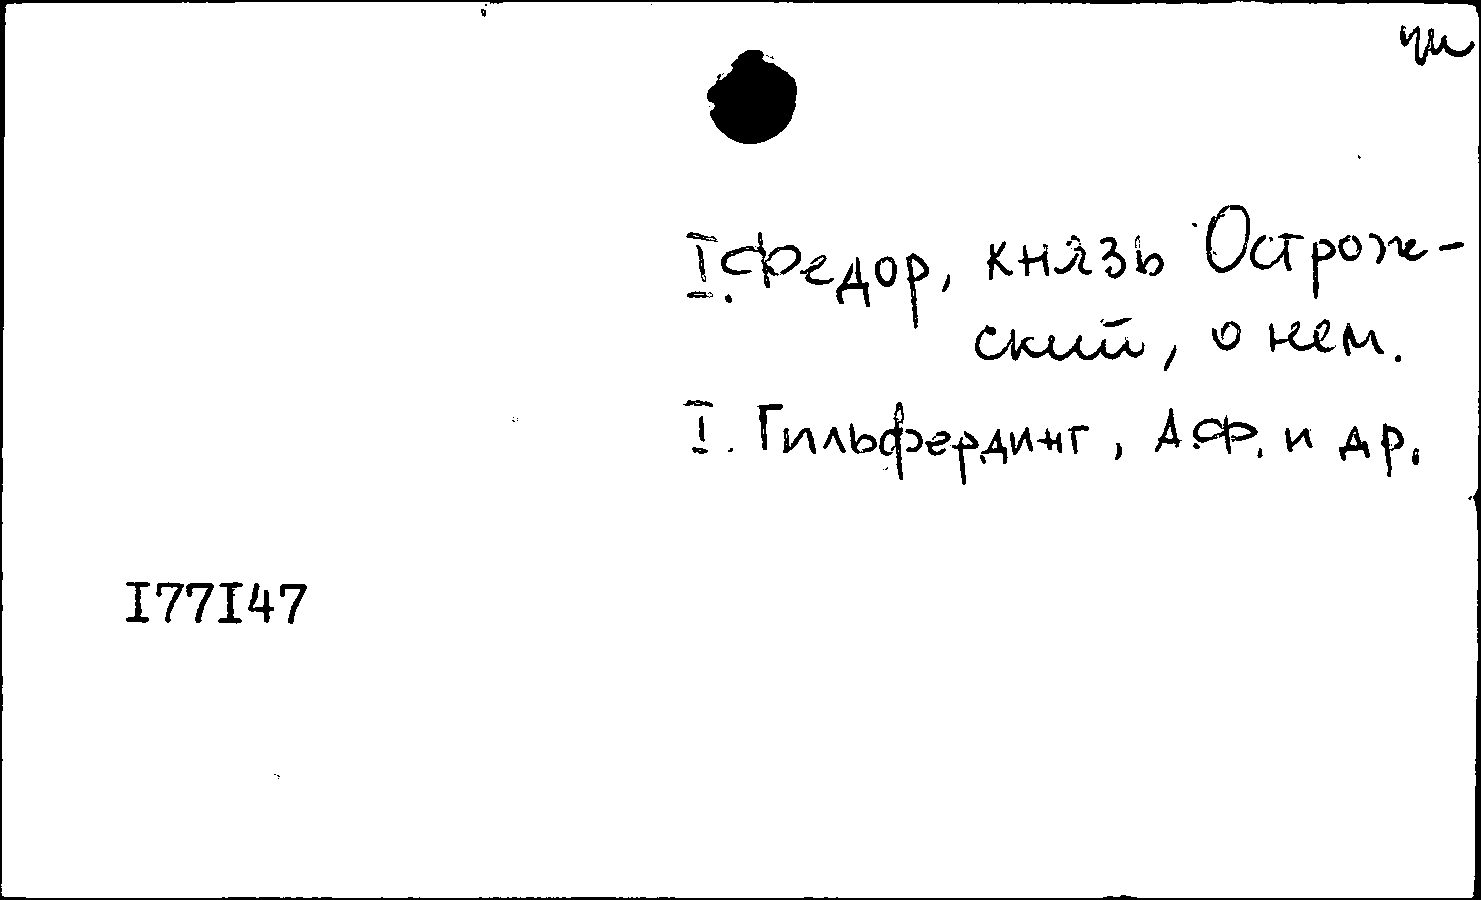 I. Федор, князь Острож-
ский, о нем.
I. Гильфердинг, А.Ф. и др.
I77I47